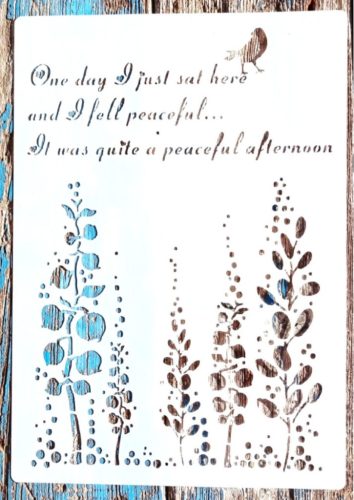 One day I just sat here
and I fell peaceful...
It was quite a peaceful afternoon